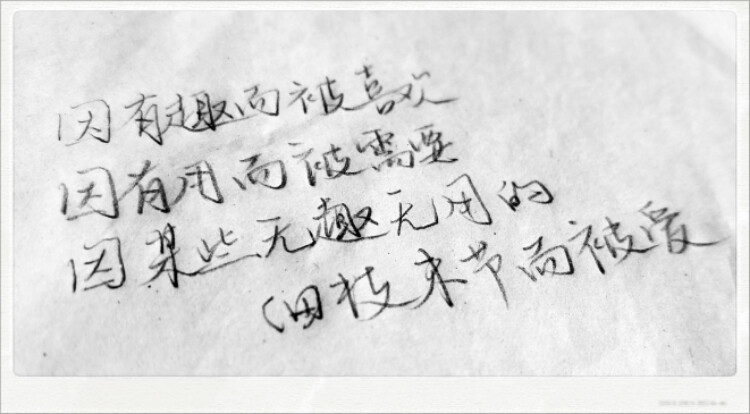 因有趣而被喜欢
因有用而被需要
因某些无趣无用的
细枝末节而被爱